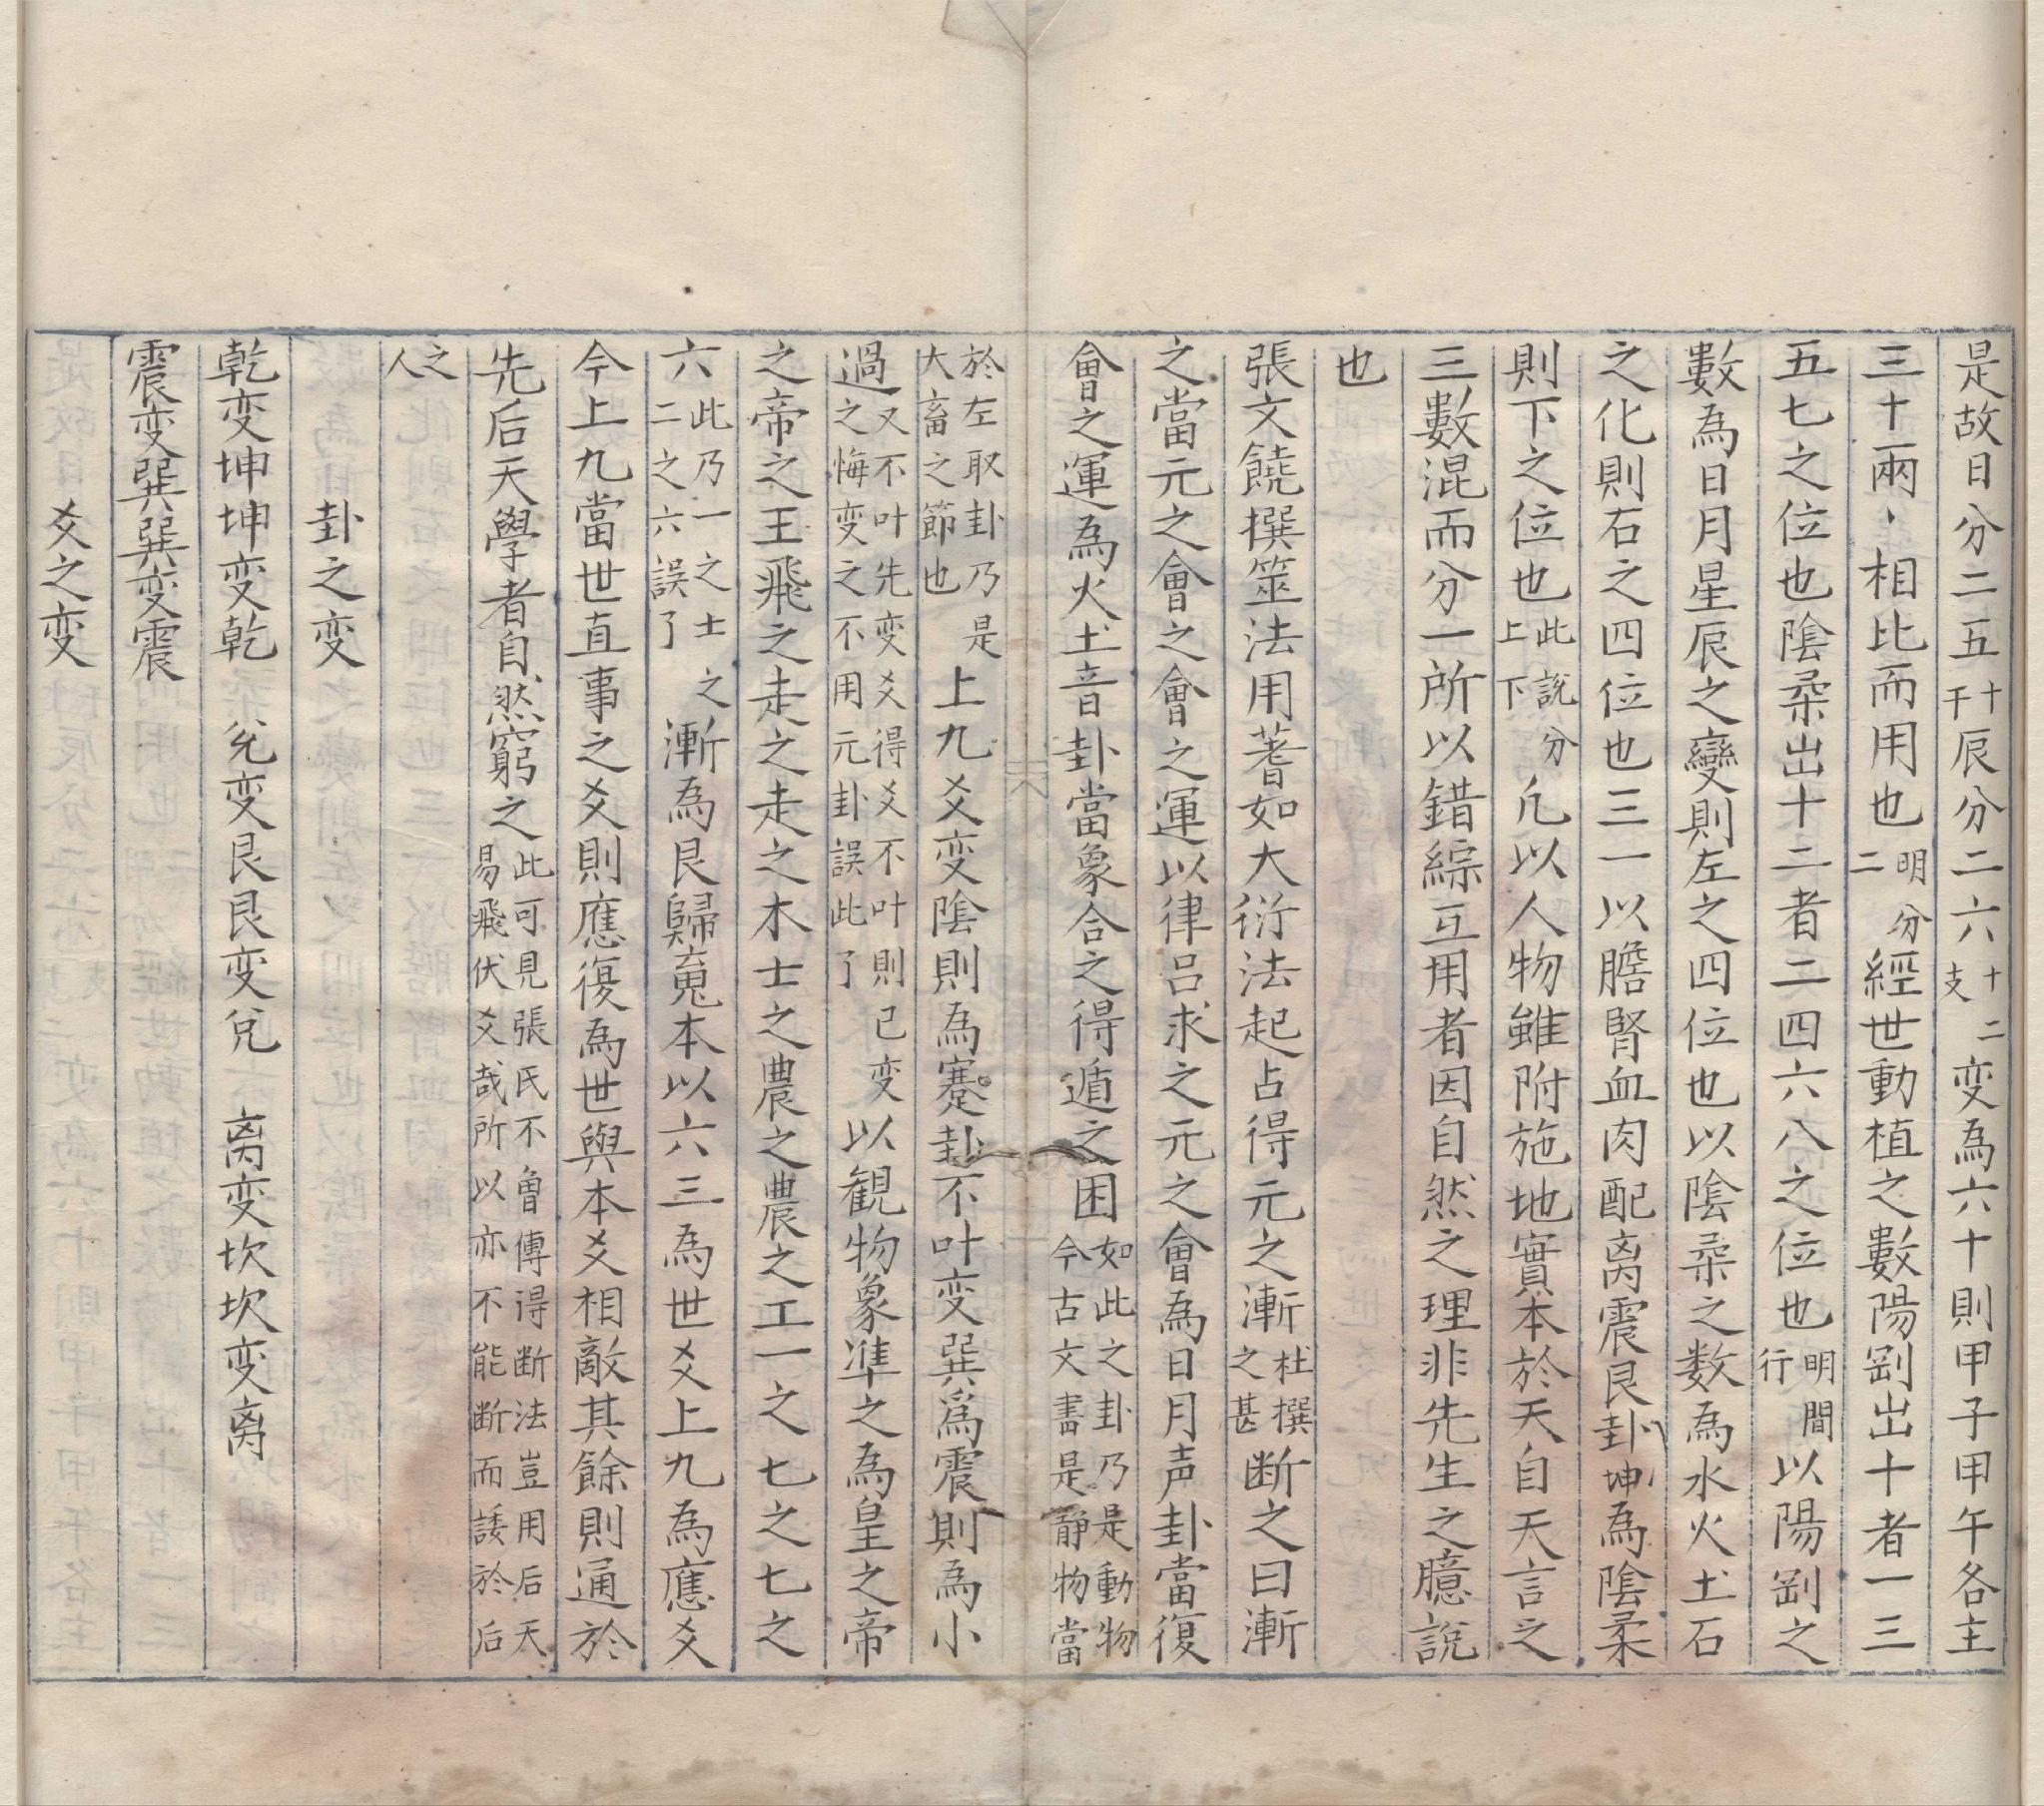 是故日分二五十干辰分二六十二支变為六十則甲子甲午各主
三十兩〻相比而用也明分二經世動植之數陽剛出十者一三
五七之位也陰柔出十二者二四六八之位也明間行以陽剛之
數為日月星辰之變則左之四位也以陰柔之数為水火土石
之化則右之四位也三一以膽腎血肉配离震艮卦坤為陰柔
則下之位也此說分上下凢以人物雖附施地實本於天自天言之
三數混而分一所以錯綜互用者因自然之理非先生之臆說
也
張文饒撰筮法用蓍如大衍法起占得元之漸杜撰之甚断之曰漸
之當元之會之會之運以律吕求之元之會為日月声卦當復
會之運為火土音卦當象合之得遁之困如此之卦乃是動物今古文書是静物當
於左取卦乃是大畜之節也上九爻变陰則為蹇卦不叶变巽為震則為小
過又不叶先变爻得爻不叶則已变之悔变之不用元卦誤此了以観物象凖之為皇之帝
之帝之王飛之走之走之木士之農之農之工一之七之七之
六此乃一之士之二之六誤了漸為艮歸䰟本以六三為世爻上九為應爻
今上九當世直事之爻則應復為世與本爻相敵其餘則通於
先后天學者自然窮之此可見張氏不曽傳得断法豈用后天易飛伏爻㢤所以亦不能断而諉於后
之人
卦之变
乾变坤坤变乾　兊变艮艮变兊　离变坎坎变离
震变巽巽变震
爻之变